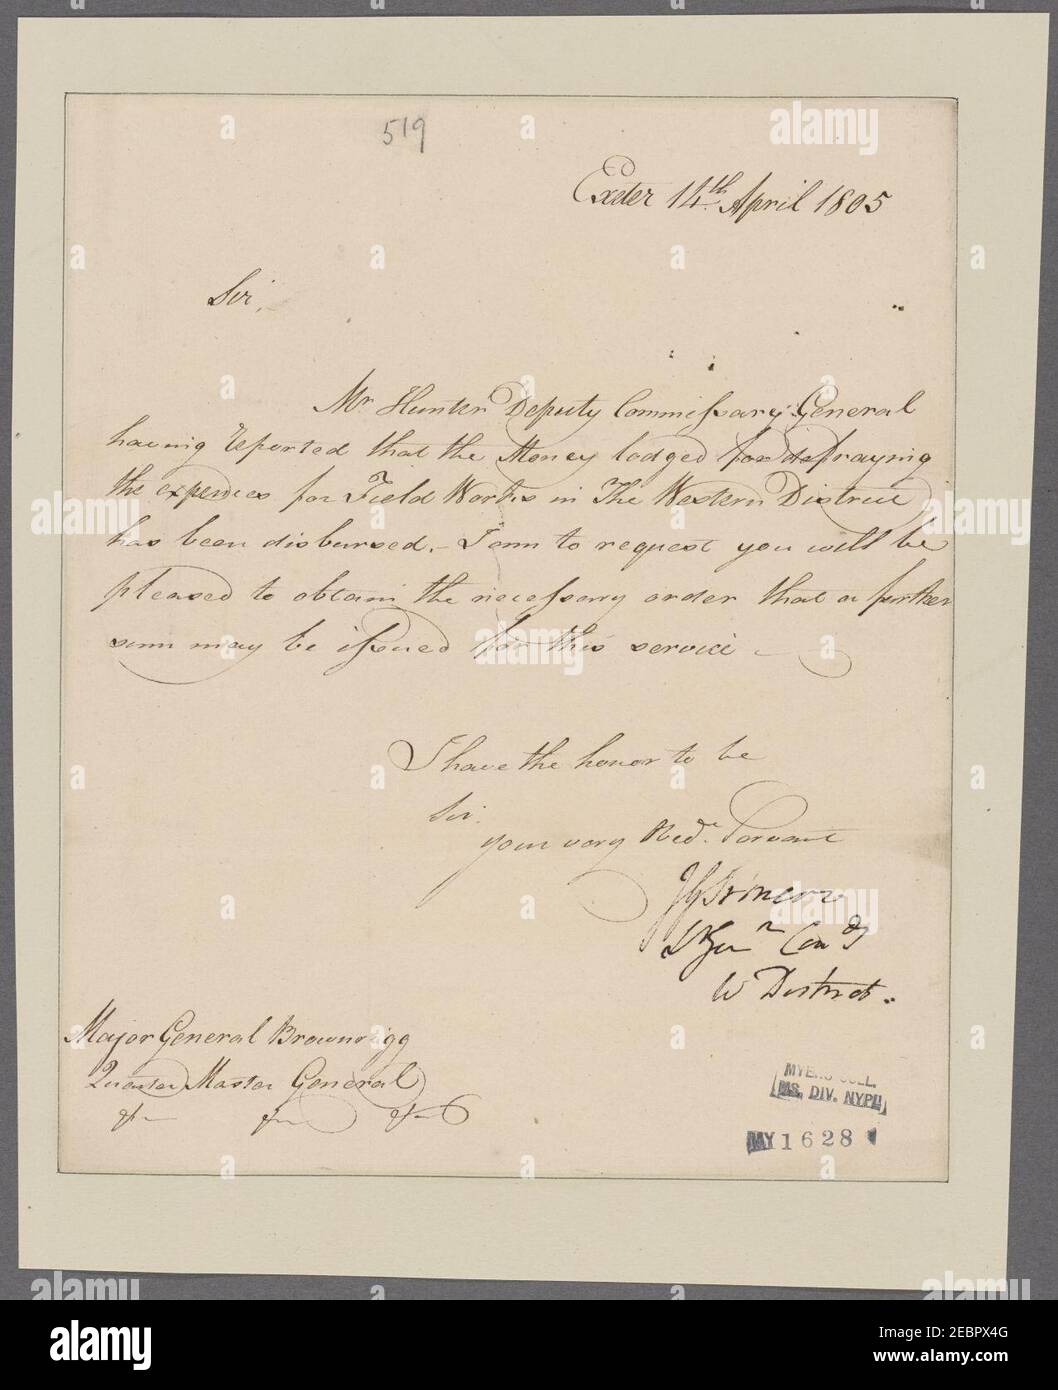 519
Exeter 14th April 1805
Sir,
Mr Hunter Deputy Commissary General
having reported that the Money lodged for defraying
the expences for Field Works in The Western District
has been disbursed, - I am to request you will be
pleased to obtain the necessary order that a further
sum may be issued for this service -
I have the honor to be
Sir.
your very Servant
Lt Genl
W District.
Major General Brownrigg
Quarter Master General
&c &c &c
MYERS COLL.
MS. DIV. NYPL
1628
alamy
Image ID: 2EBPX4G
www.alamy.com